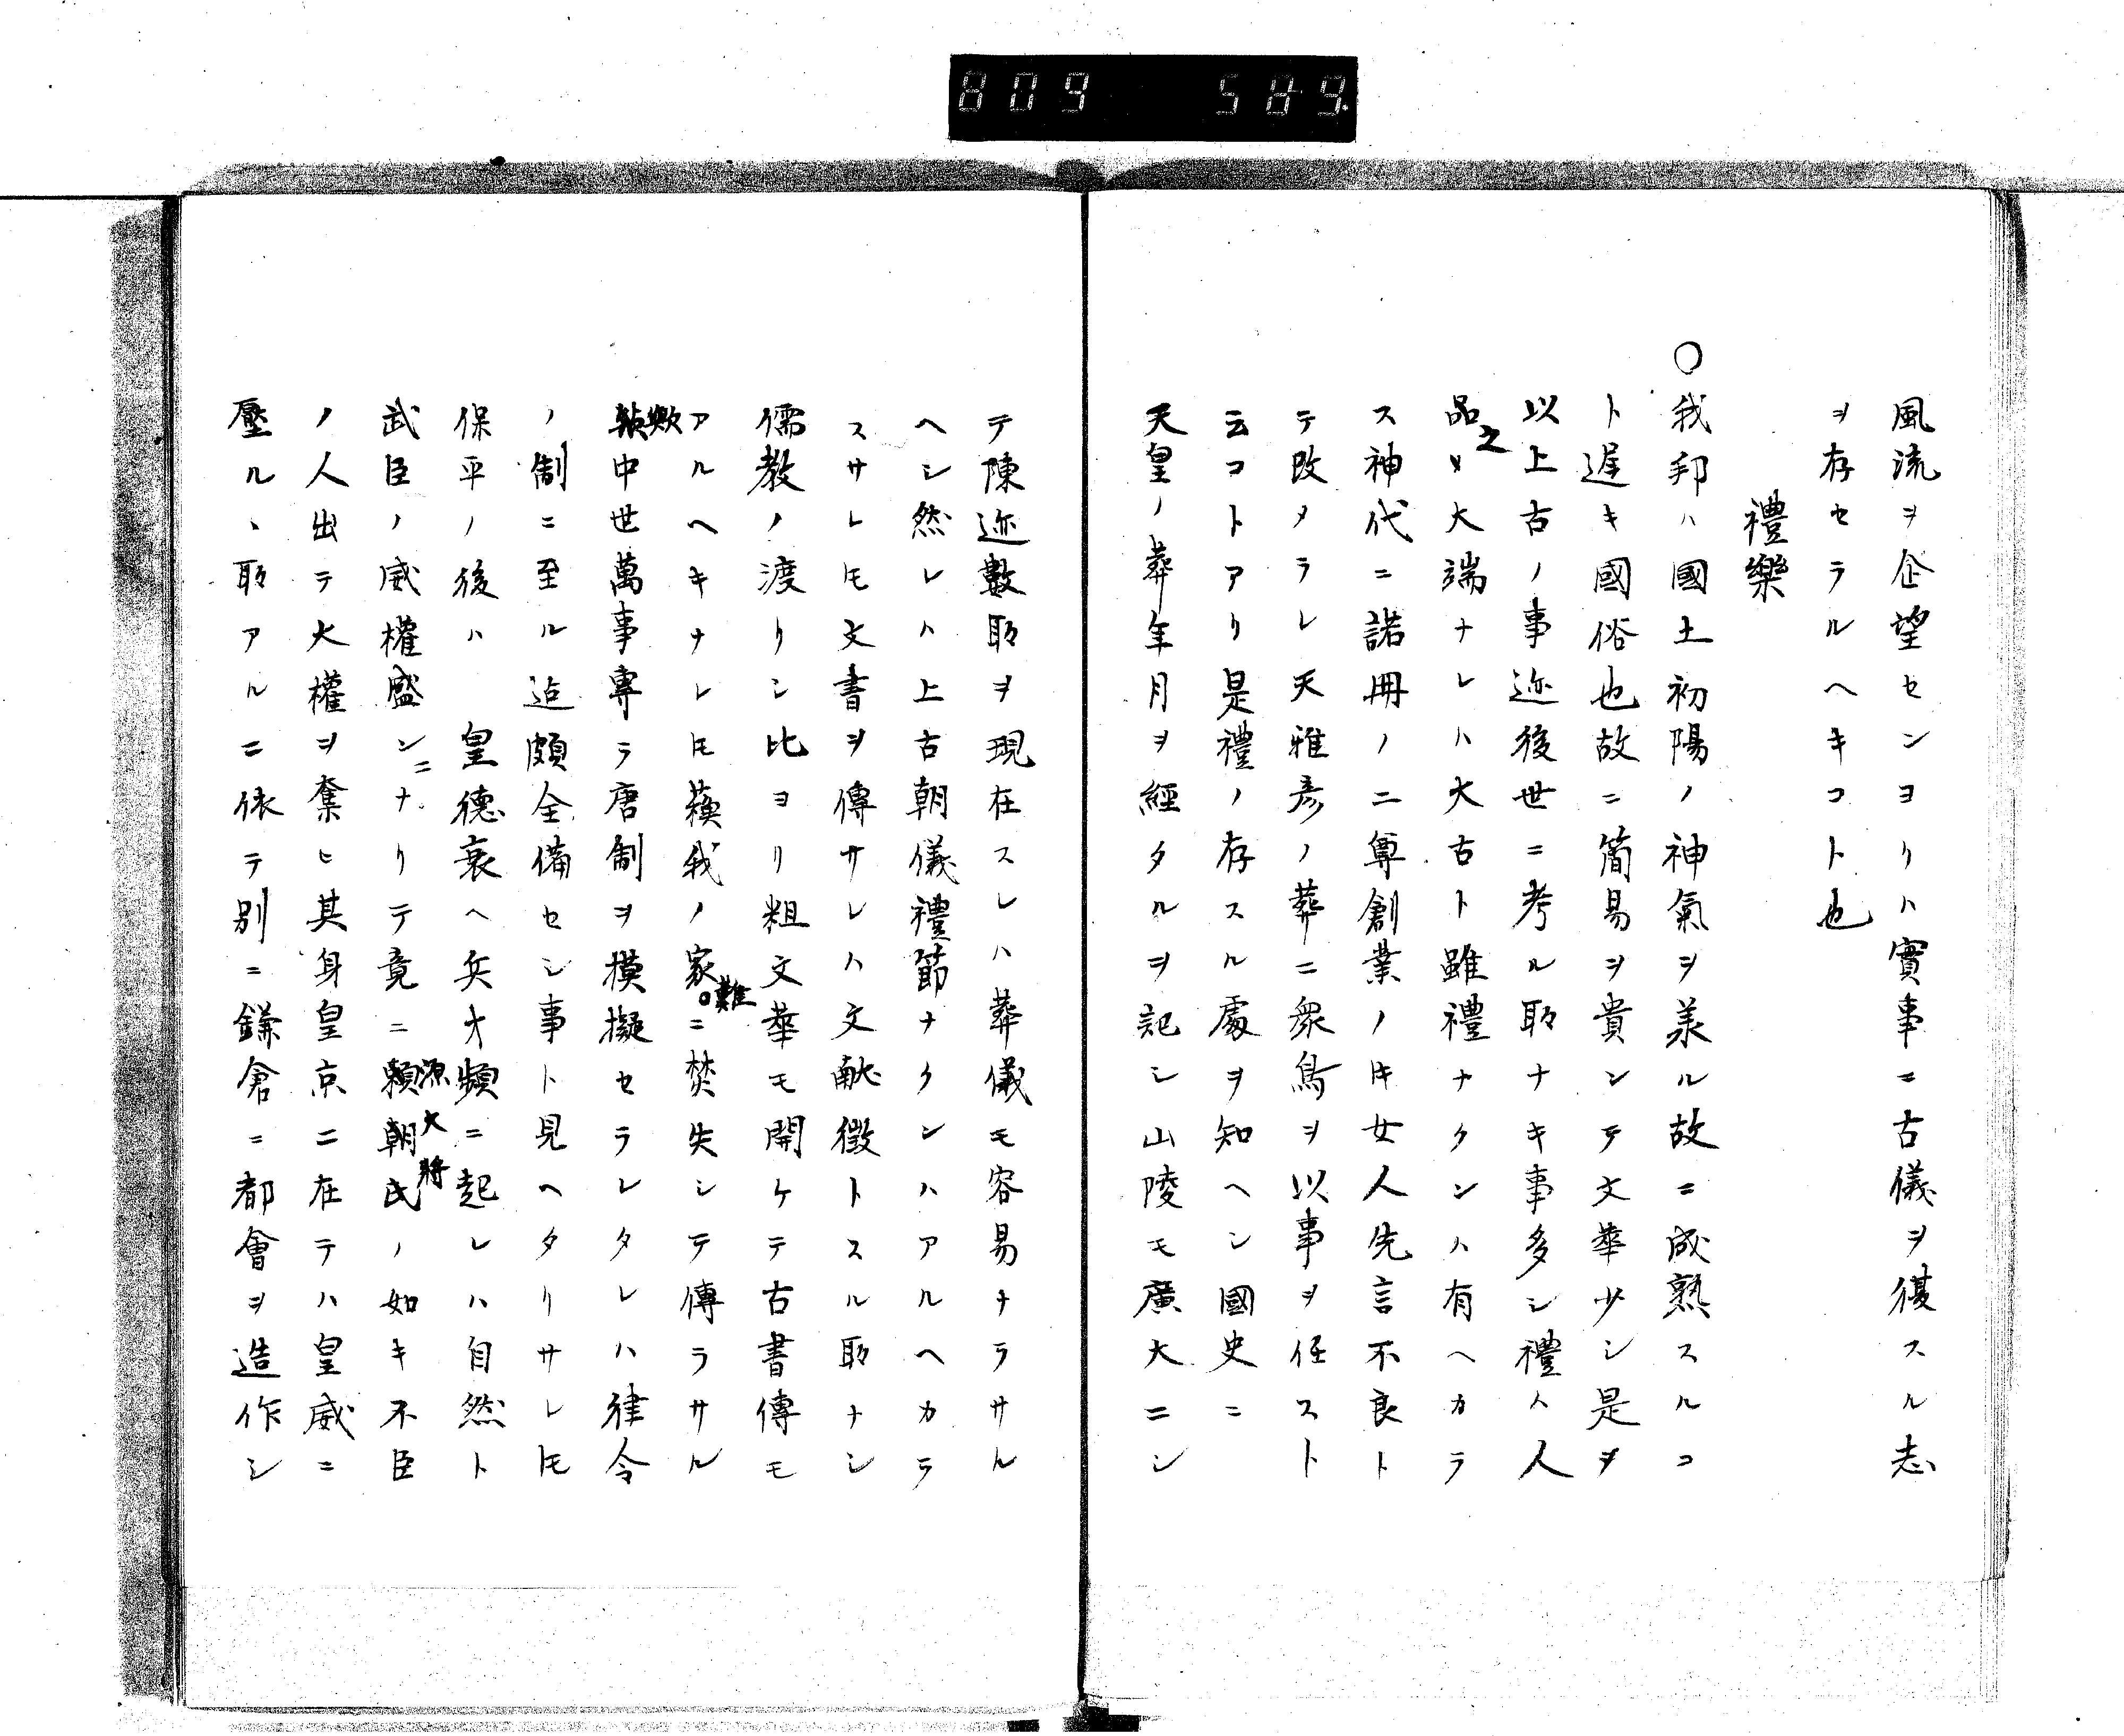 809 589.
風流ヲ企望センヨリハ實事ニ古儀ヲ復スル志
ヲ存セラルヘキコト也
禮樂
○我邦ハ國土初陽ノ神氣ヲ羕ル故ニ成熟スルコ
ト遅キ國俗也故ニ簡易ヲ貴ンテ文華少シ是ヲ
以上古ノ事迹後世ニ考ル所ナキ事多シ禮ハ人
品之大端ナレハ大古ト雖禮ナクンハ有ヘカラ
ス神代ニ諾冊ノ二尊創業ノ𪜈女人先言不良ト
テ改メラレ天雅彦ノ葬ニ衆鳥ヲ以事ヲ任スト
云コトアリ是禮ノ存スル處ヲ知ヘシ國史ニ
天皇ノ葬年月ヲ經タルヲ記シ山陵モ廣大ニシ
テ陳迹數所ヲ現在スレハ葬儀モ容易ナラサル
ヘシ然レハ上古朝儀禮節ナクンハアルヘカラ
スサレ𪜈文書ヲ傳サレハ文献徴トスル所ナシ
儒教ノ渡リシ比ヨリ粗文華モ開ケテ古書傳モ
アルヘキナレ𪜈蘓我ノ家難ニ焚失シテ傳ラサル
歟中世萬事専ラ唐制ヲ摸擬セラレタレハ律令
ノ制ニ至ル迠頗全備セシ事ト見ヘタリサレ𪜈
保平ノ後ハ 皇德衰ヘ兵才頻ニ起レハ自然ト
武臣ノ威權盛ンニナリテ竟ニ源大將頼朝氏ノ如キ不臣
ノ人出テ大權ヲ奪ヒ其身皇京ニ在テハ皇威ニ
壓ルヽ所アルニ依テ別ニ鎌倉ニ都會ヲ造作シ